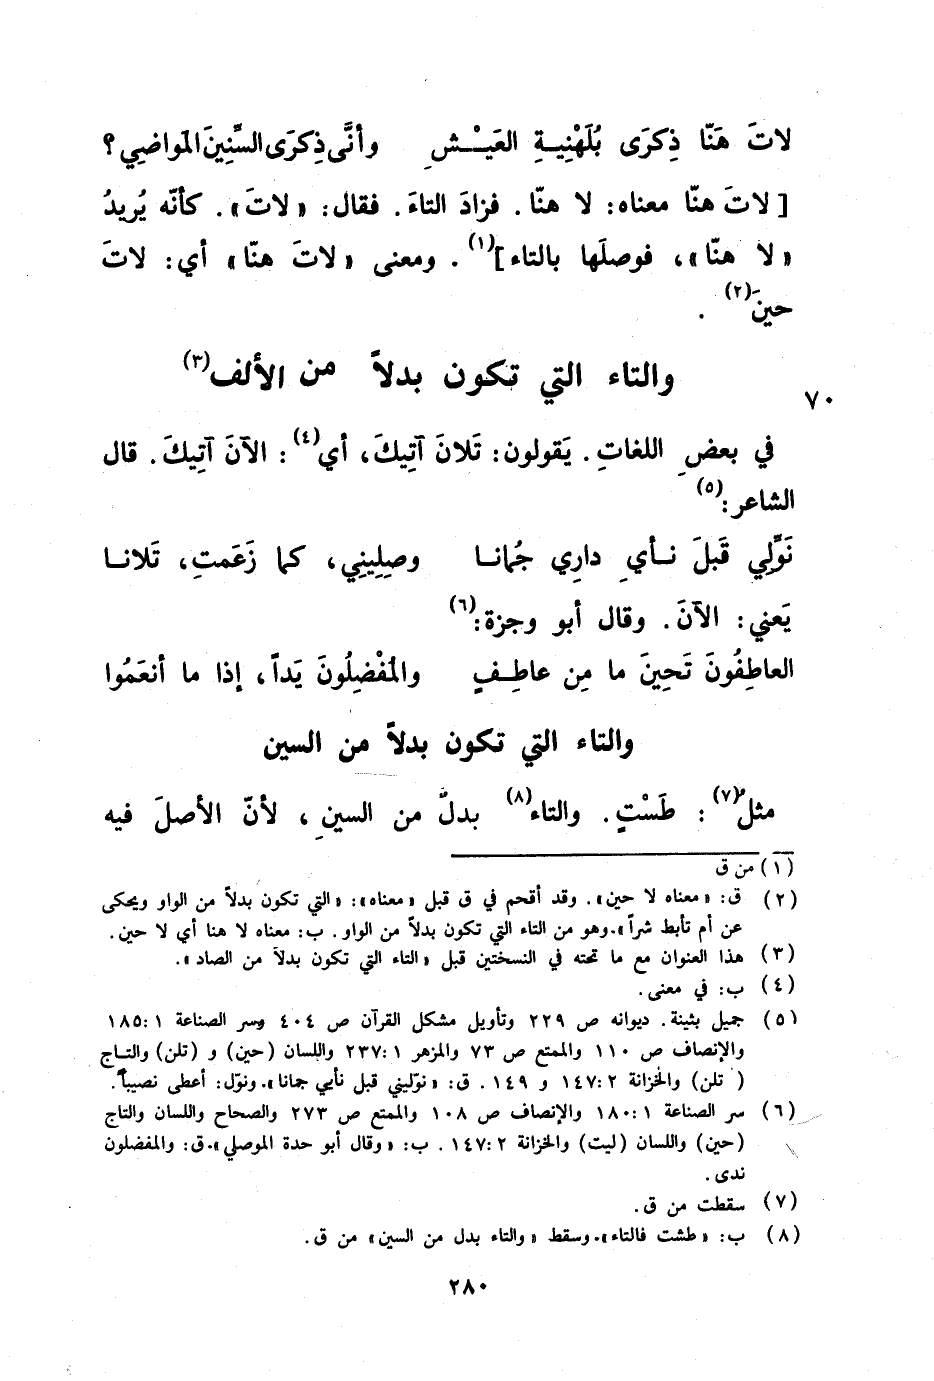 لاتَ هَنّا ذِكرَى بُلَهْنِيةِ العَيْشِ وأنَّى ذِكرَى السِّنِينَ المَواضِي؟
[لاتَ هنّا معناه: لا هنّا. فزادَ التاءَ. فقال: «لاتَ». كأنّه يُريدُ
«لا هنّا»، فوصلَها بالتاء](١). ومعنى «لاتَ هنّا» أي: لاتَ
حينَ(٢).
والتاء التي تكون بدلاً من الألف(٣)
٧٠
في بعضِ اللغاتِ. يَقولون: تَلانَ آتِيكَ، أي(٤): الآنَ آتِيكَ. قال
الشاعر:(٥)
نَوِّلِي قَبلَ نأيِ دارِي جُمانا وصِلِينِي، كما زَعَمتِ، تَلانا
يَعني: الآنَ. وقال أبو وجزة:(٦)
العاطِفُونَ تَحِينَ ما مِن عاطِفٍ والمُفْضِلُونَ يَداً، إذا ما أنعَمُوا
والتاء التي تكون بدلاً من السين
مثلُ(٧): طَسْتٍ. والتاء(٨) بدلٌ من السينِ، لأنّ الأصلَ فيه
(١) من ق
(٢) ق: «معناه لا حين». وقد أقحم في ق قبل «معناه»: «التي تكون بدلاً من الواو ويحكى
عن أم تأبط شراً».وهو من التاء التي تكون بدلاً من الواو. ب: معناه لا هنا أي لا حين.
(٣) هذا العنوان مع ما تحته في النسختين قبل «التاء التي تكون بدلاً من الصاد».
(٤) ب: في معنى.
(٥) جميل بثينة. ديوانه ص ٢٢٩ وتأويل مشكل القرآن ص ٤٠٤ وسر الصناعة ١٨٥:١
والإنصاف ص ١١٠ والممتع ص ٧٣ والمزهر ٢٣٧:١ واللسان (حين) و (تلن) والتاج
(تلن) والخزانة ١٤٧:٢ و ١٤٩. ق: «نوّليني قبل نأيي جمانا».ونوّل: أعطى نصيباً.
(٦) سر الصناعة ١٨٠:١ والإنصاف ص ١٠٨ والممتع ص ٢٧٣ والصحاح واللسان والتاج
(حين) واللسان (ليت) والخزانة ١٤٧:٢. ب: «وقال أبو حدة الموصلي».ق: والمفضلون
ندى.
(٧) سقطت من ق.
(٨) ب: «طشت فالتاء».وسقط «والتاء بدل من السين» من ق.
٢٨٠